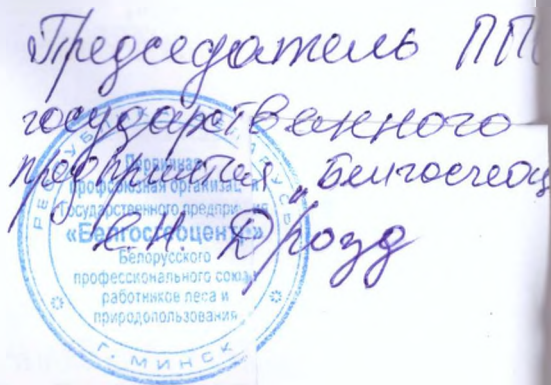 Председатель ПП
государственного
предприятия „Белгосгеоц
Е.Н. Дрозд
РЕСПУБЛИКА БЕЛАРУСЬ
Первичная
профсоюзная организация
Государственного предприятия
«Белгосгеоцентр»
Белорусского
профессионального союза
работников леса и
природопользования
г. МИНСК